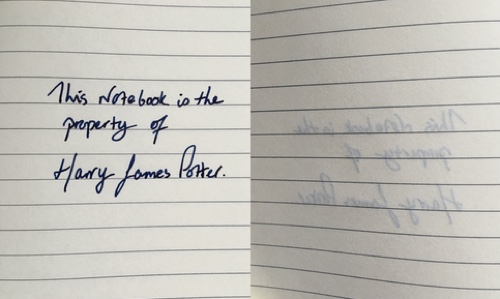 This Notebook is the
property of
Harry James Potter.